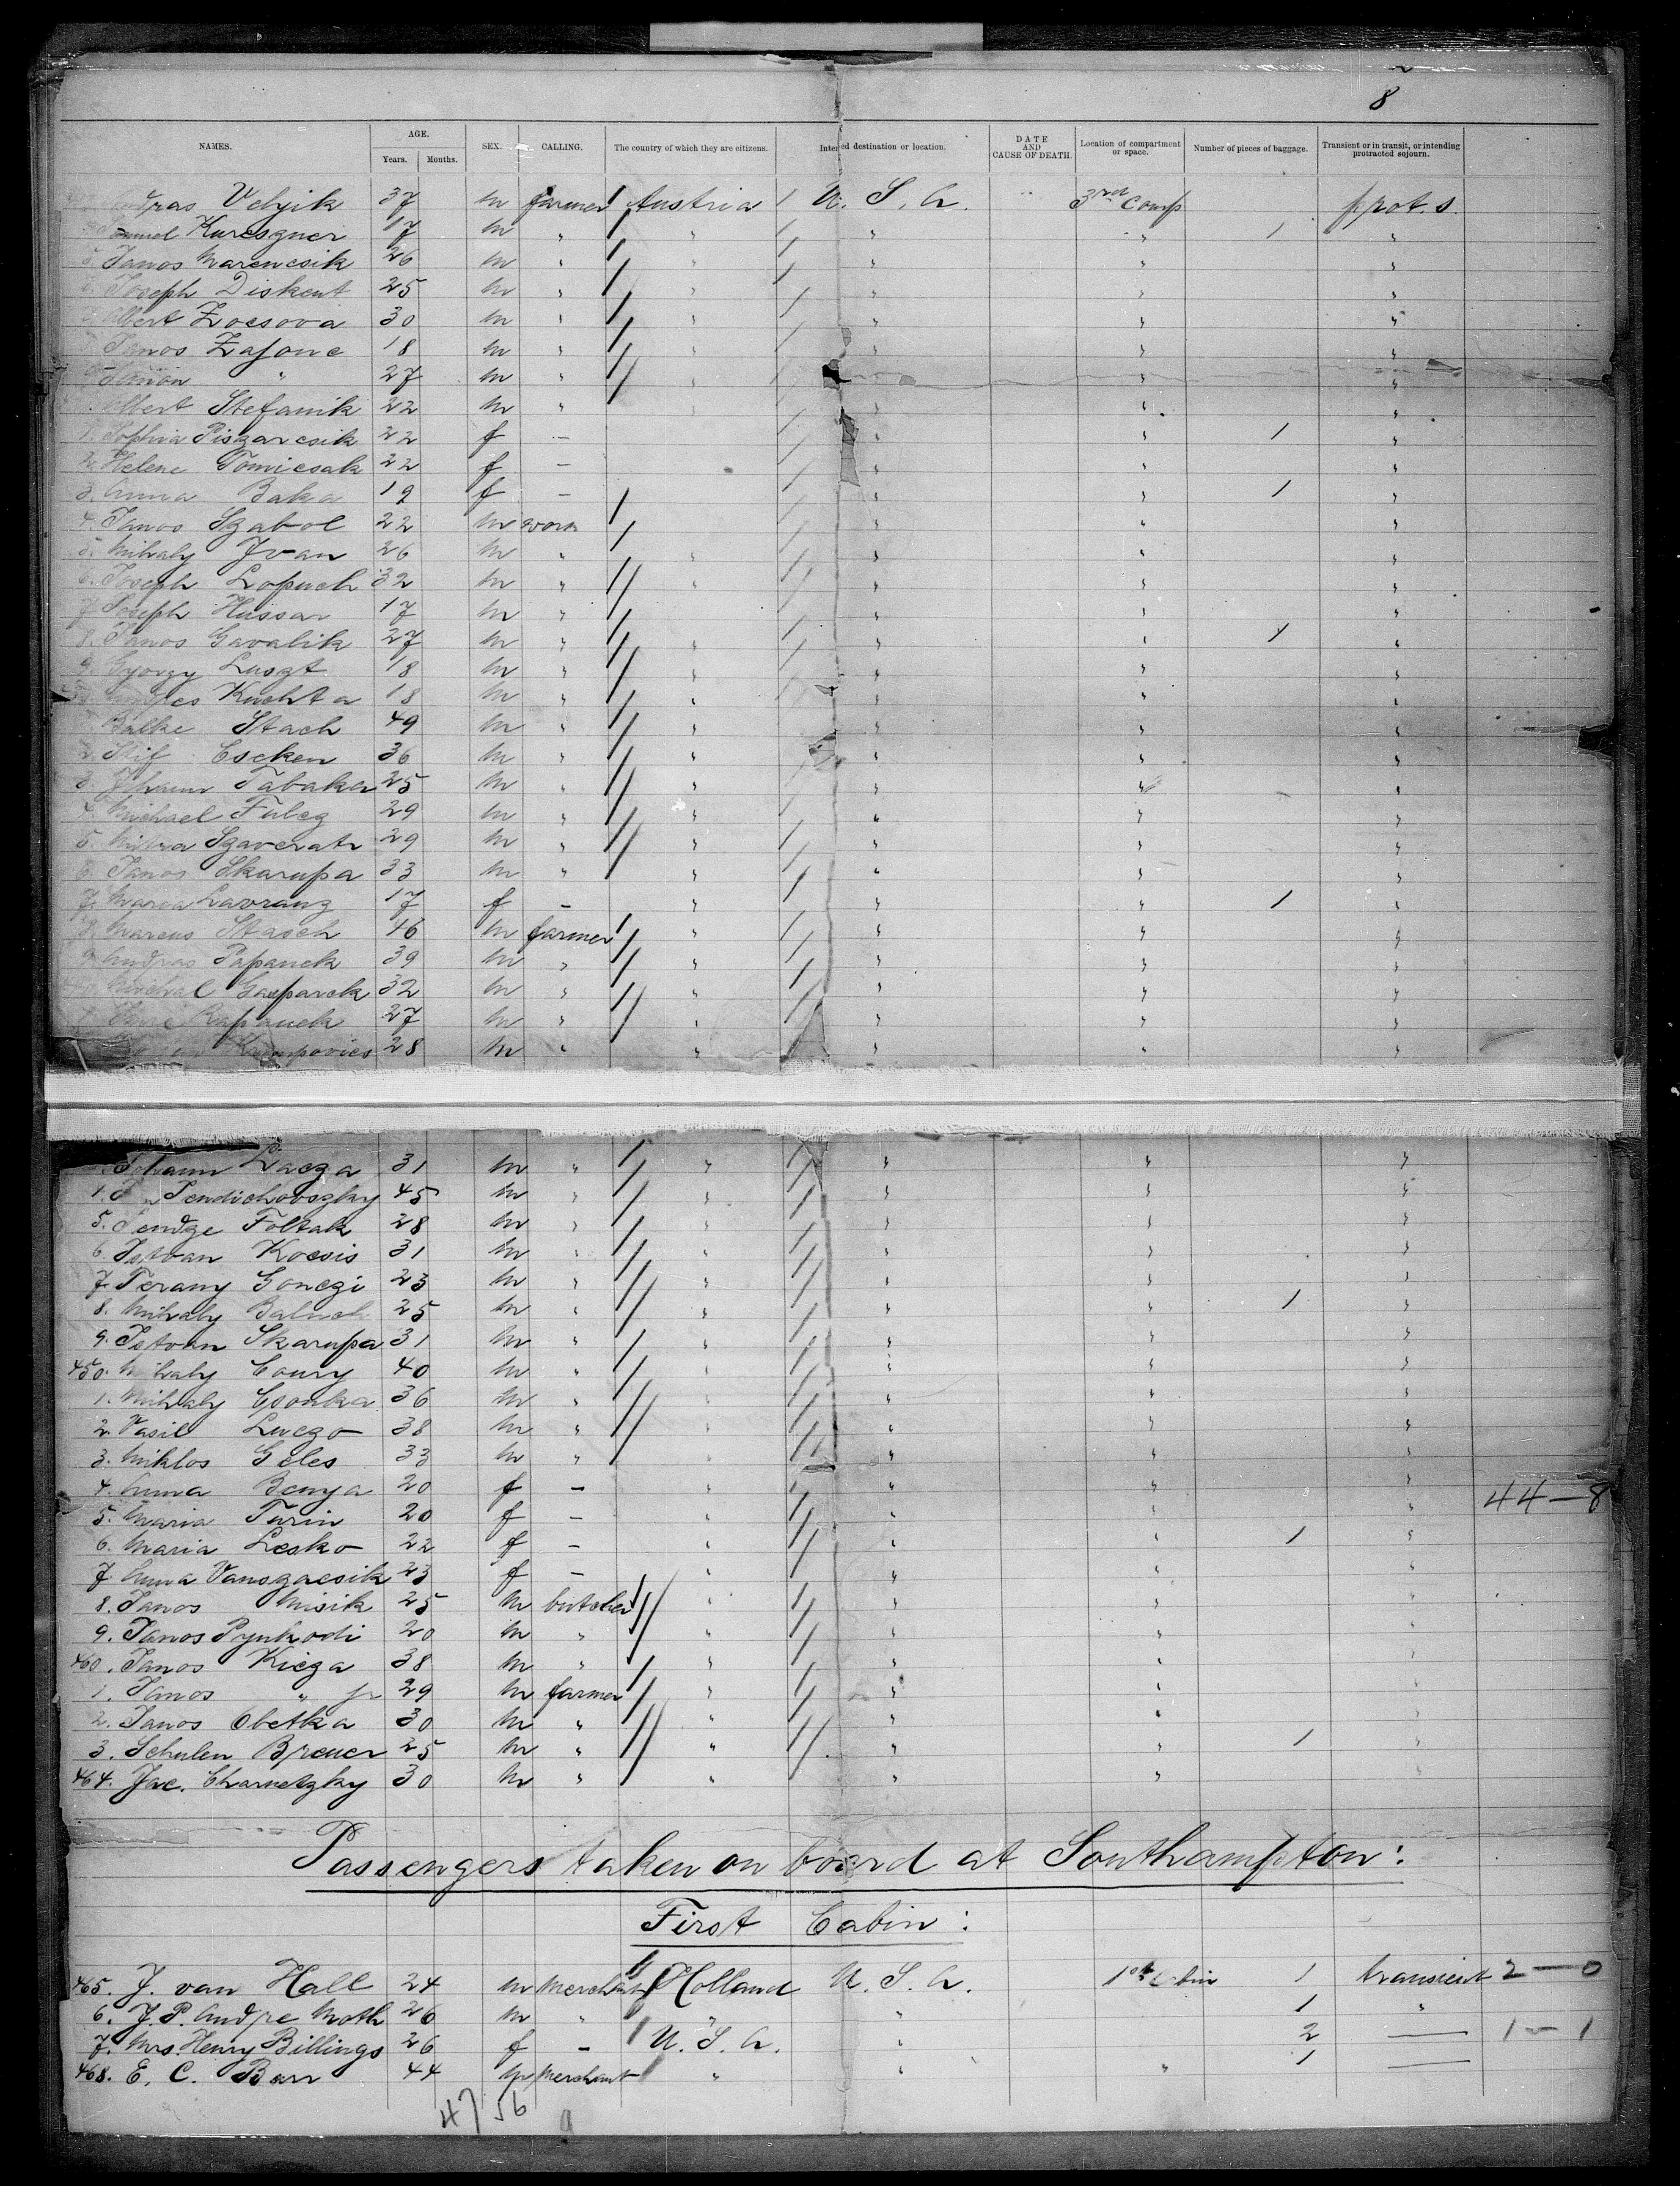 8
NAMES. AGE. Years. Months. SEX. CALLING. The country of which they are citizens. Intended destination or location. DATE AND CAUSE OF DEATH. Location of compartment or space. Number of pieces of baggage. Transient or in transit, or intending protracted sojourn.
Velyik 37 m farmer Austria U. S. A. 3rd Comp prot. s.
Samuel Kureszner 17 m " " " " 1 "
5. Janos Marencsik 26 m " " " " "
Joseph Diskent 25 m " " " " "
Albert Zocsova 30 m " " " " "
Janos Zajonc 18 m " " " " "
Simon " 27 m " " " " "
Albert Stefanik 22 m " " " " "
1. Sophia Piszarcsik 22 f — " " 1 "
2. Helene Tomicsak 22 f — " " "
3. Anna Baka 19 f — " " 1 "
4. Janos Szabol 22 m work " " "
5. Mihaly Ivan 26 m " " " " "
6. Joseph Lopuch 32 m " " " " "
7. Joseph Hussar 17 m " " " " "
8. Janos Gavalik 27 m " " " " 1 "
9. György Luszt 18 m " " " " "
Kuchta 18 m " " " " "
Balke Stach 49 m " " " " "
2. Stif Escken 36 m " " " " "
3. Johann Tabaka 25 m " " " " "
4. Michael Fulcz 29 m " " " " "
5. Mitra Szaverats 29 m " " " " "
6. Janos Skarupa 33 m " " " " "
7. Maria Lavranz 17 f — " " " 1 "
8. Marcus Stasch 46 m farmer " " " "
9. Andras Papanek 39 m " " " " "
Michal Gasparek 32 m " " " " "
Rapanek 27 m " " " " "
28 m " " " " "
Johann Lacza 31 m " " " " "
Pendichovszky 45 m " " " " "
5. Foltak 28 m " " " " "
6. Istvan Kocsis 31 m " " " " "
7. Ferany Gonczi 23 m " " " " "
8. Mihaly Baluch 25 m " " " " 1 "
9. Istvan Skarupa 31 m " " " " "
450. Mihaly Coury 40 m " " " " "
1. Mihaly Csonka 36 m " " " " "
2. Vasil Luczo 38 m " " " " "
3. Miklos Geles 33 m " " " " "
4. Anna Benya 20 f — " " " " 44—8
5. Maria Turin 20 f — " " " "
6. Maria Lesko 22 f — " " " 1 "
7. Anna Vanszacsik 23 f — " " " "
8. Janos Misik 25 m butcher " " " "
9. Janos Pynkodi 20 m " " " " "
460. Janos Kicza 38 m " " " " "
1. Janos " jr 29 m farmer " " " "
2. Janos Obetka 30 m " " " " "
3. Schulen Breuer 25 m " " " " 1 "
464. Jac. Charnetzky 30 m " " " " "
Passengers taken on board at Southampton:
First Cabin:
465. J. van Hall 24 m Merchant Holland U. S. A. 1st Cabin 1 transient 2—0
6. J. P. Andre Moth 26 m " " " 1 "
7. Mrs. Henry Billings 26 f — U. S. A. " 2 — 1—1
468. E. C. Barr 44 m Merchant " " " 1 —
47 56
9